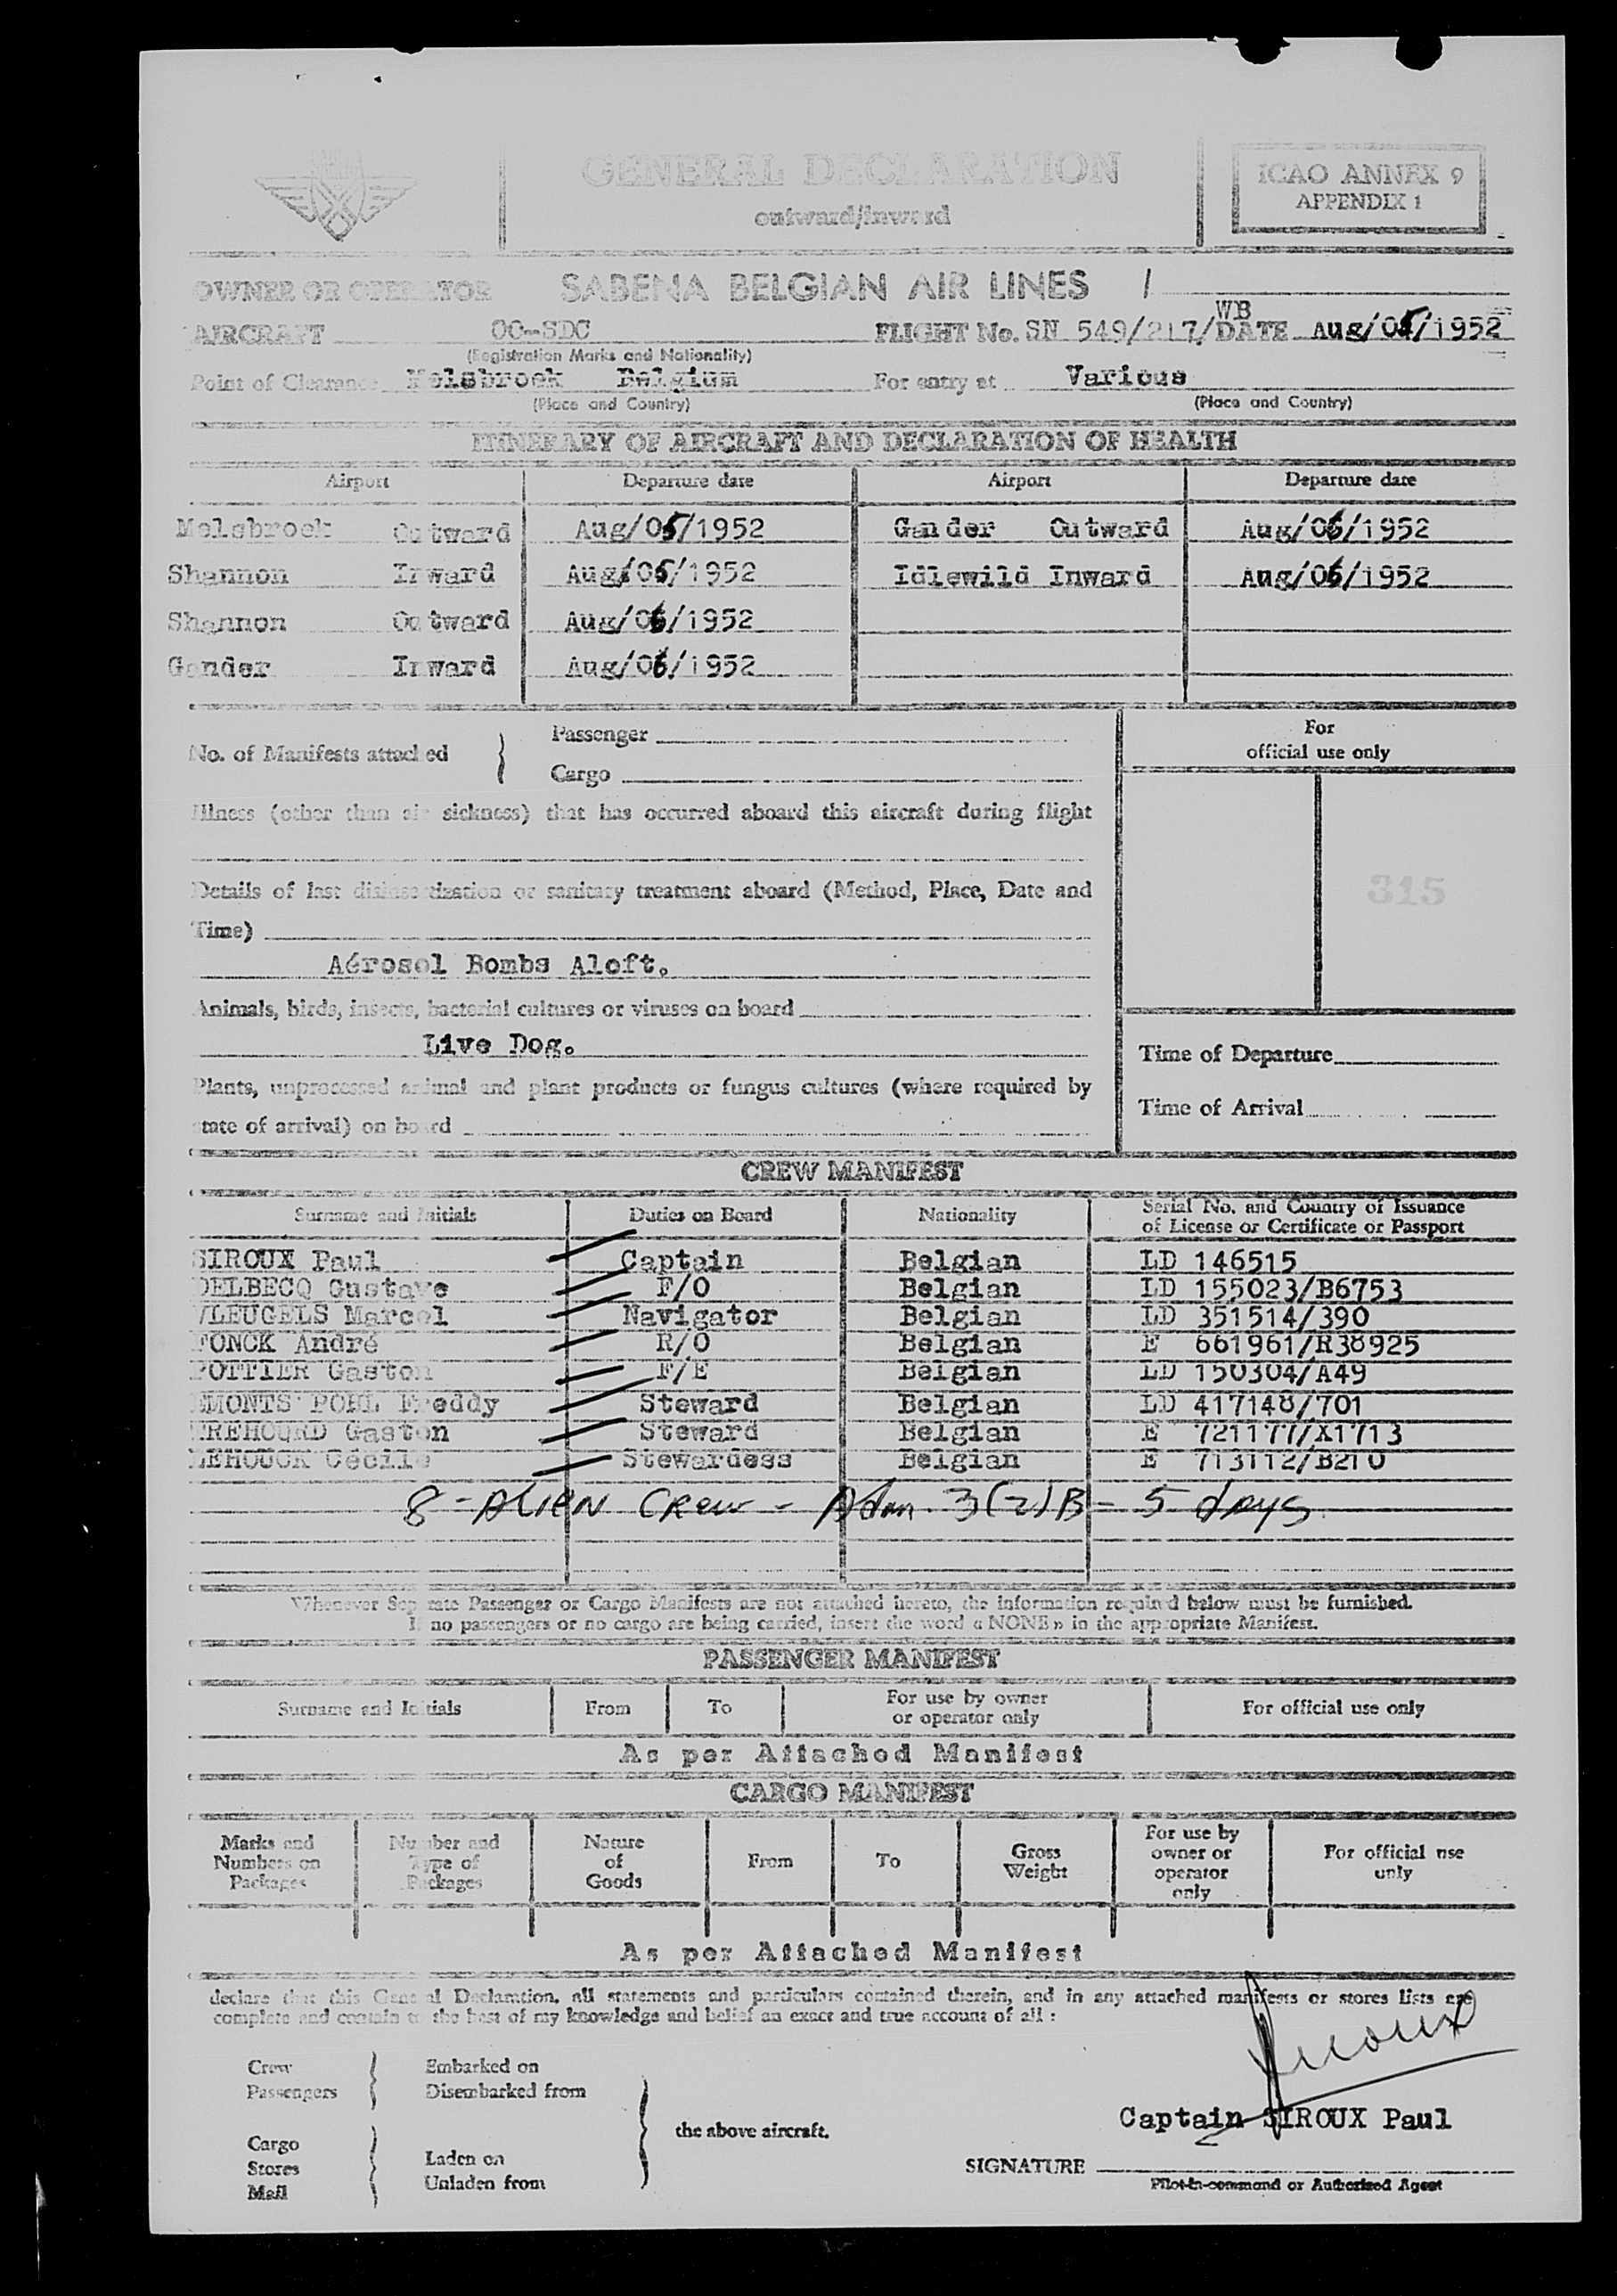 GENERAL DECLARATION
outward/inward
ICAO ANNEX 9
APPENDIX 1
OWNER OR OPERATOR SABENA BELGIAN AIR LINES /
AIRCRAFT OO-SDC FLIGHT No. SN 549/217/WB DATE Aug/05/1952
(Registration Marks and Nationality)
Point of Clearance Melsbroek Belgium For entry at Various
(Place and Country) (Place and Country)
ITINERARY OF AIRCRAFT AND DECLARATION OF HEALTH
Airport Departure date Airport Departure date
Melsbroek Outward Aug/05/1952 Gander Outward Aug/06/1952
Shannon Inward Aug/06/1952 Idlewild Inward Aug/06/1952
Shannon Outward Aug/06/1952
Gander Inward Aug/06/1952
No. of Manifests attached } Passenger
Cargo
For
official use only
Illness (other than air sickness) that has occurred aboard this aircraft during flight
Details of last disinsectization or sanitary treatment aboard (Method, Place, Date and
Time)
315
Aérosol Bombs Aloft.
Animals, birds, insects, bacterial cultures or viruses on board
Live Dog.
Time of Departure
Plants, unprocessed animal and plant products or fungus cultures (where required by
state of arrival) on board
Time of Arrival
CREW MANIFEST
Surname and Initials Duties on Board Nationality Serial No. and Country of Issuance
of License or Certificate or Passport
SIROUX Paul Captain Belgian LD 146515
DELBECQ Gustave F/O Belgian LD 155023/B6753
VLEUGELS Marcel Navigator Belgian LD 351514/390
FONCK André R/O Belgian E 661961/R38925
POTTIER Gaston F/E Belgian LD 150304/A49
EMONTS POHL Freddy Steward Belgian LD 417148/701
TREHOURD Gaston Steward Belgian E 721177/X1713
LEHOUCK Cécile Stewardess Belgian E 713112/B210
8 - Alien Crew - Adm. 3(2)B - 5 days
Whenever Separate Passenger or Cargo Manifests are not attached hereto, the information required below must be furnished.
If no passengers or no cargo are being carried, insert the word « NONE » in the appropriate Manifest.
PASSENGER MANIFEST
Surname and Initials From To For use by owner
or operator only For official use only
As per Attached Manifest
CARGO MANIFEST
Marks and
Numbers on
Packages Number and
Type of
Packages Nature
of
Goods From To Gross
Weight For use by
owner or
operator
only For official use
only
As per Attached Manifest
declare that this General Declaration, all statements and particulars contained therein, and in any attached manifests or stores lists are
complete and contain to the best of my knowledge and belief an exact and true account of all :
Siroux
Crew
Passengers } Embarked on
Disembarked from
Cargo
Stores
Mail } Laden on
Unladen from
} the above aircraft.
Captain SIROUX Paul
SIGNATURE
Pilot-in-command or Authorized Agent